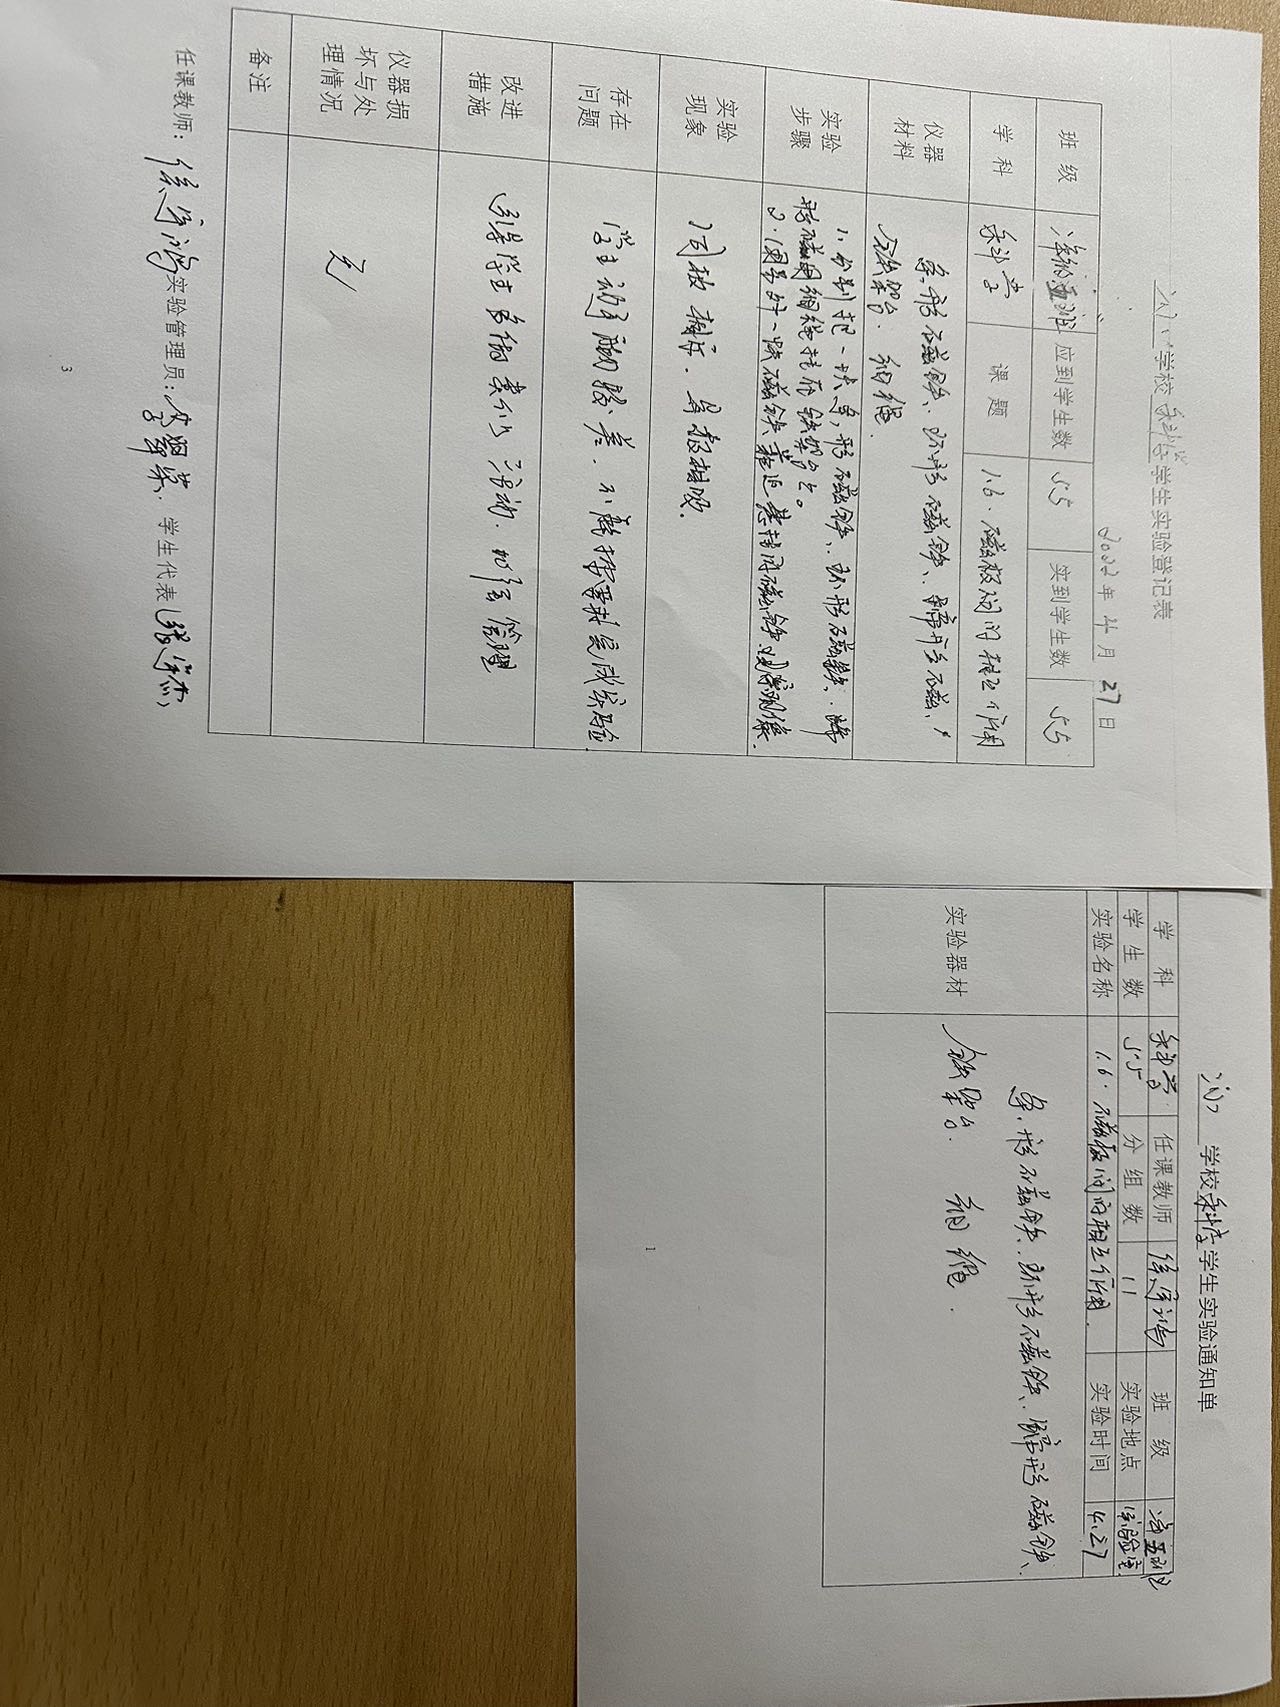 学校 科学 学生实验登记表
2022年4月27日
班级 应到学生数 55 实到学生数 55
学科 科学 课题 1.6.磁极间的相互作用
仪器材料 条形磁铁、环形磁铁、蹄形磁、
铁架台.细绳.
实验步骤 1.分别把一块条形磁铁、环形磁铁、蹄
形磁用细绳挂在铁架台上。
2.用另外一块磁铁靠近悬挂的磁铁
实验现象 同极相斥.异极相吸.
存在问题 学生动手能力较差.不能按要求完成实验.
改进措施 引导学生多做类似活动.加强管理
仪器损坏与处理情况 无
备注
任课教师: 实验管理员: 学生代表
3
学校科学学生实验通知单
学科 科学 任课教师 班级 五班
学生数 55 分组数 11 实验地点 实验室
实验名称 1.6.磁极间的相互作用. 实验时间 4.27
实验器材 条形磁铁、环形磁铁、蹄形磁铁、
铁架台.细绳.
1